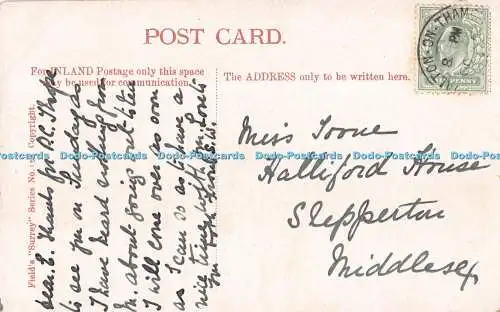 POST CARD.
For INLAND Postage only this space
may be used for communication.
The ADDRESS only to be written here.
Field's "Surrey" Series No. Copyright.
dear. E. Thanks for P.C. Hope
to see you on Sunday as
I have heard nothing from
M. about going out to tea
I will come over as soon
as I can so as to have a
nice time with
Miss Toone
Halliford House
Shepperton
Middlesex
WALTON-ON-THAM
PENNY
Dodo-Postcards Dodo-Postcards Dodo-Postcards Dodo-Postcards